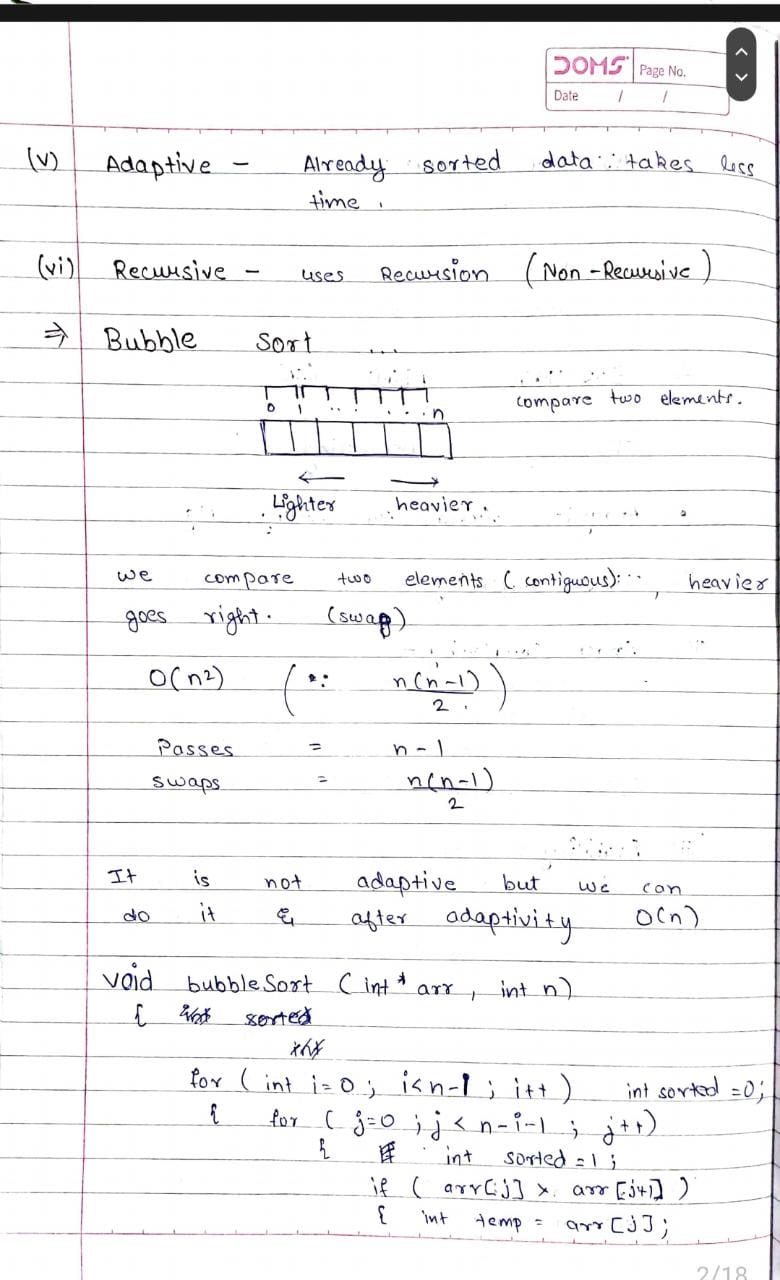 DOMS Page No.
Date / /
(v) Adaptive - Already sorted data ∴ takes less
time.
(vi) Recursive - uses Recursion (Non-Recursive)
⇒ Bubble Sort ...
0 1 .. ... n
compare two elements.
← →
Lighter heavier.
we compare two elements (contiguous): , heavier
goes right. (swap)
O(n2) (∵ n(n-1)/2)
Passes = n-1
swaps = n(n-1)/2
It is not adaptive but we can
do it & after adaptivity O(n)
void bubbleSort (int* arr, int n)
{ int sorted
for (int i=0; i<n-1; i++) int sorted =0;
{ for (j=0; j<n-i-1; j++)
{ int sorted =1;
if (arr[j] > arr[j+1])
{ int temp = arr[j];
2/18